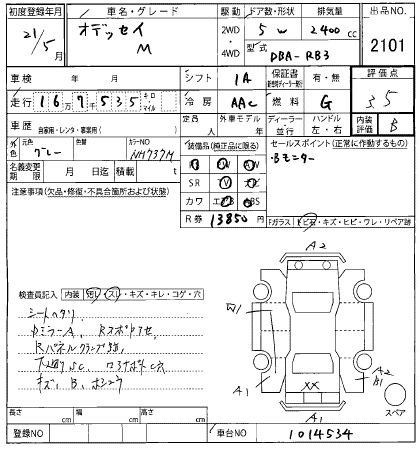 初度登録年月 車名・グレード 駆動 ドア数・形状 排気量 出品NO.
21/5月 オデッセイ M 2WD・4WD 5W 2400cc 2101
型式 DBA-RB3
車検 年 月 シフト IA 保証書 有・無 評価点 3.5
走行 167535 キロ・マイル 冷房 AAC 燃料 G
車歴 自家用・レンタ・事業用( ) 定員 人 外車モデル ディーラー・並行 ハンドル 左・右 内装評価 B
外色 元色 グレー 色替 カラーNO NH737M 装備品(純正品に限る) セールスポイント(正常に作動するもの)
名義変更期限 月 日迄 積載 t ・Bモニター
SR
カワ
R券 13850円
注意事項(欠品・修復・不具合箇所および状態)
Fガラス トビ石・キズ・ヒビ・ワレ・リペア跡
A2
W1
A1
A2
B1
XX
A1
スペア
検査員記入 内装 汚レ・スレ・キズ・キレ・コゲ・穴
シートヘタリ
キズ、B、
長さ cm 幅 cm 高さ cm
登録NO 車台NO 1014534